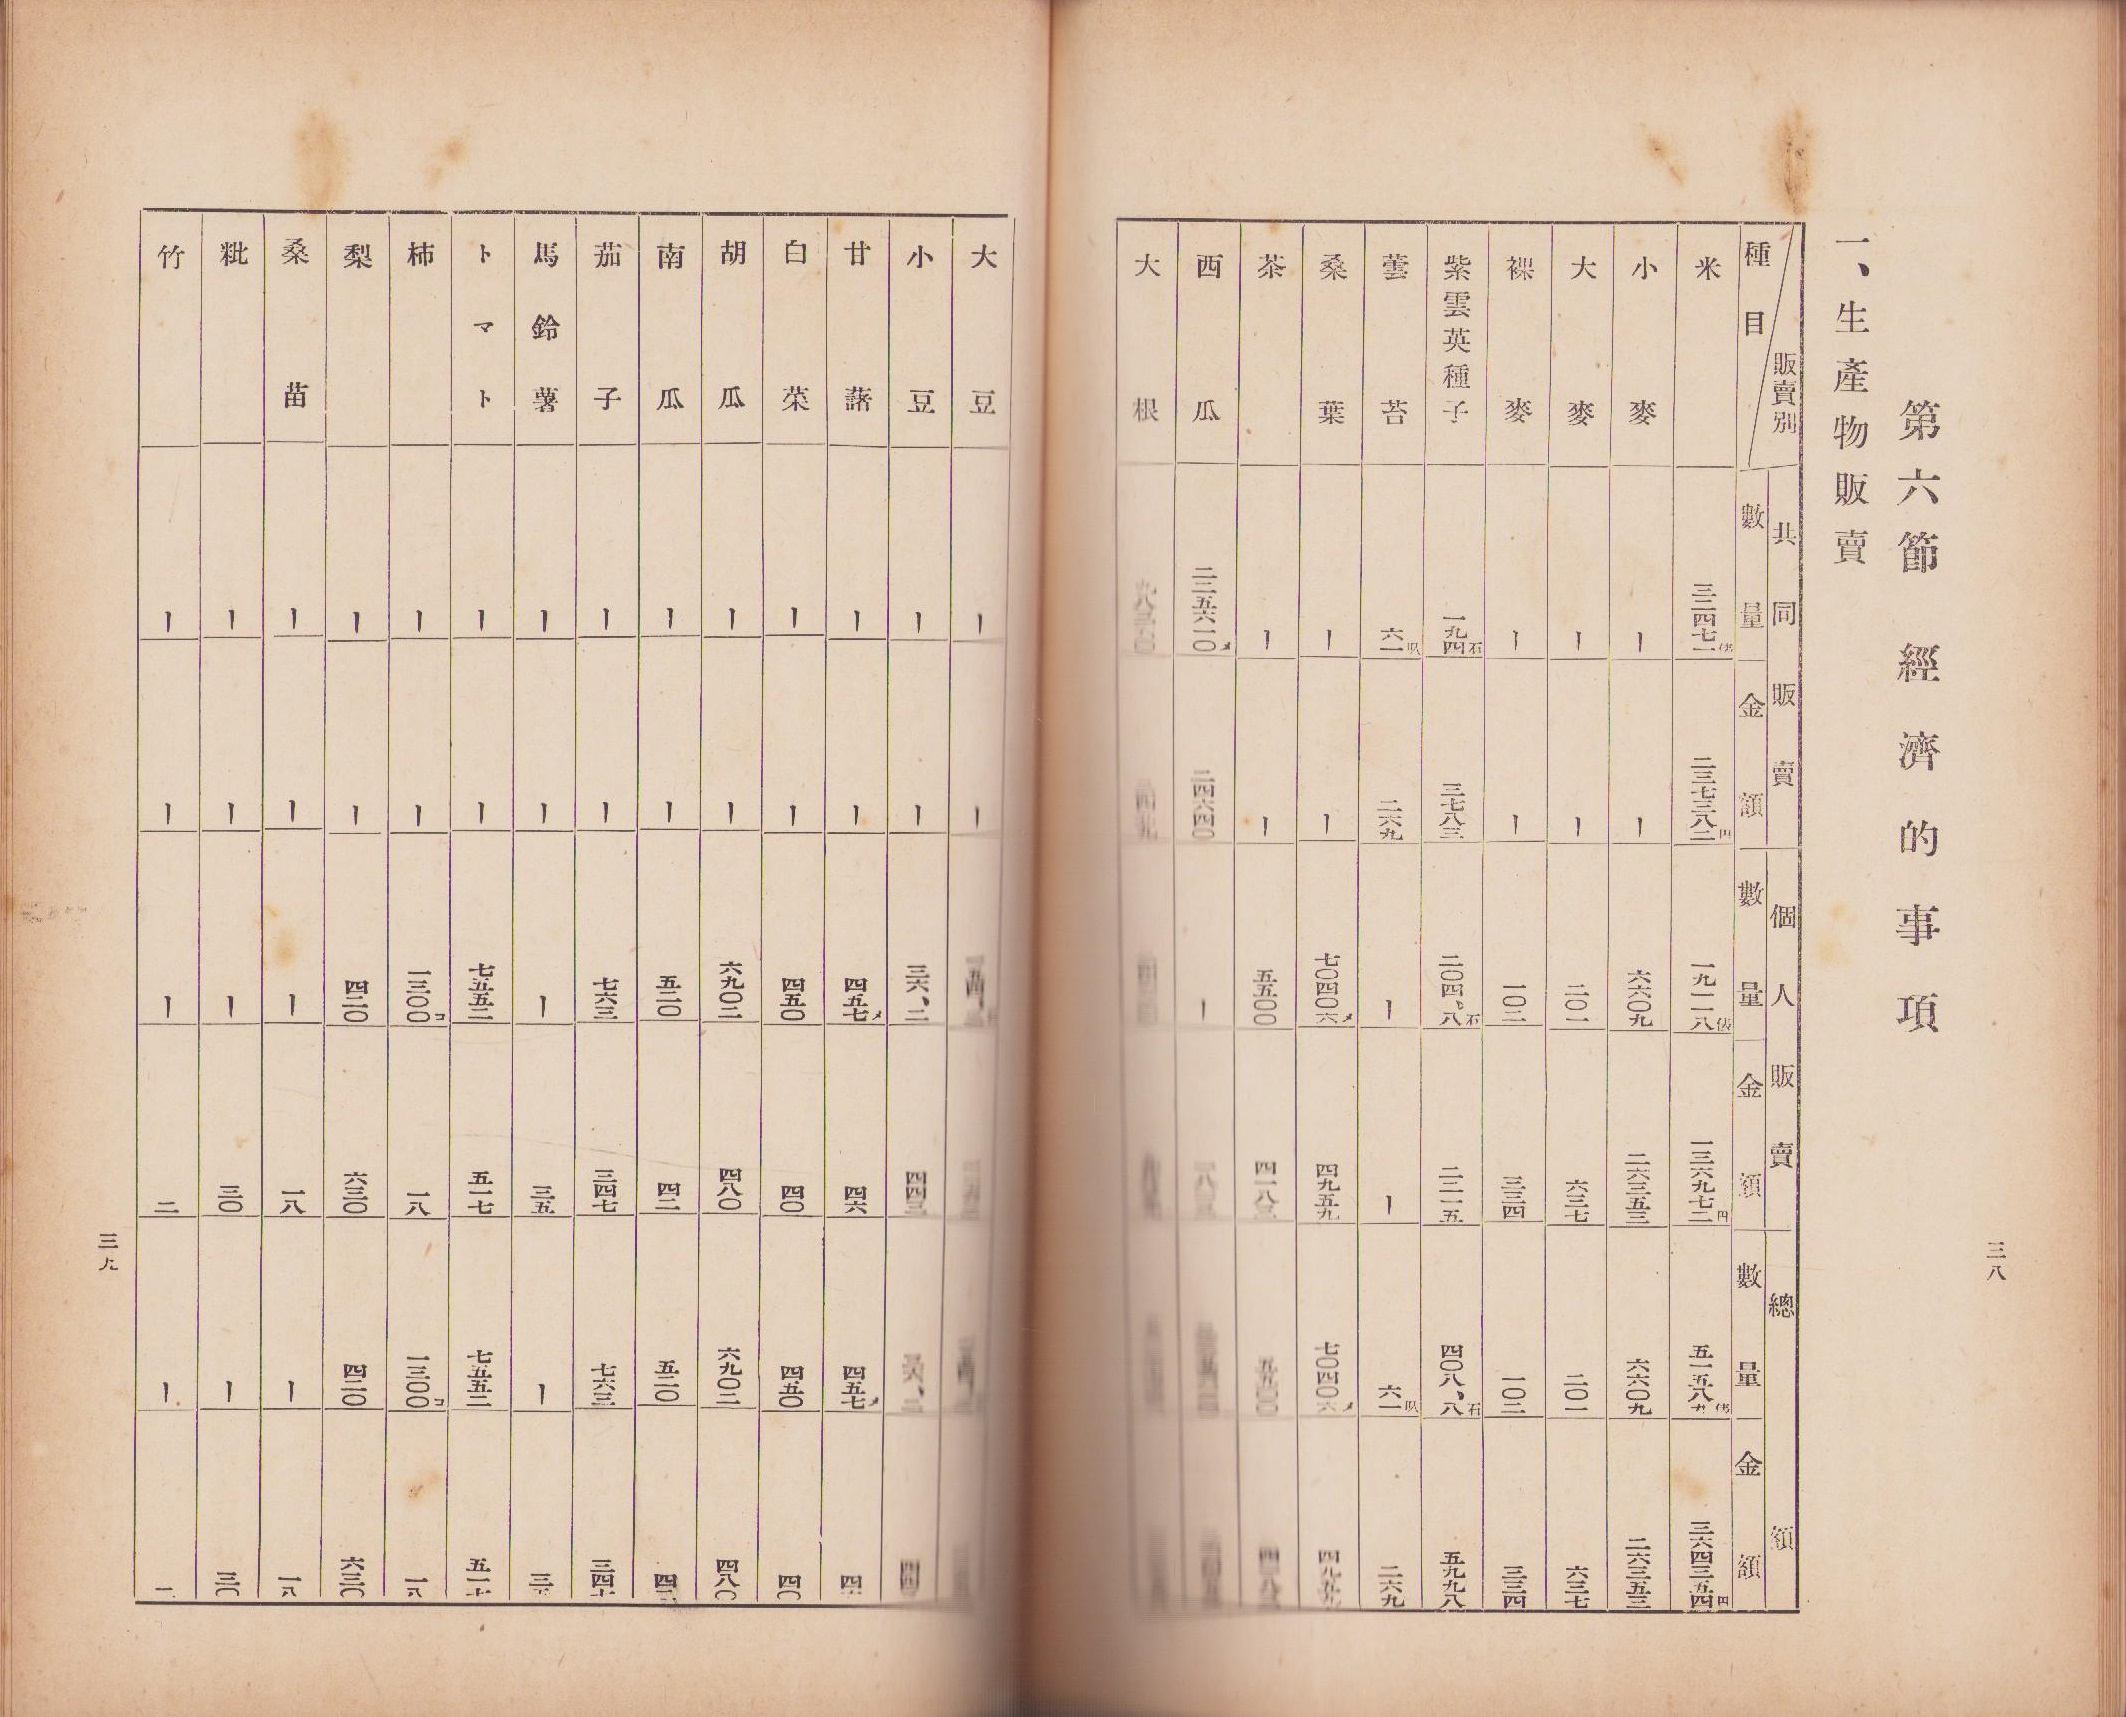 第六節　經濟的事項
一、生產物販賣
販賣別
種目
共同販賣
個人販賣
總額
數量　金額　數量　金額　數量　金額
米　三二四七一俵　二三七三八二円　一九一一八俵　一三六九七二円　五一五八九俵　三六四三五四円
小麥　｜　｜　六六〇九　二六三五三　六六〇九　二六三五三
大麥　｜　｜　二〇一　六三七　二〇一　六三七
裸麥　｜　｜　一〇二　三三四　一〇二　三三四
紫雲英種子　一九四石　三七八三　二〇四、八石　二二一五　四〇八、八石　五九九八
蕓苔　六一叺　二六九　｜　｜　六一叺　二六九
桑葉　｜　｜　七〇四〇六メ　四九五九　七〇四〇六メ　四九五九
茶　｜　｜　五五〇〇　四一八三　五五〇〇　四一八三
西瓜　二二五六一〇メ　二四六四〇　｜
大根
三八
大豆　｜　｜
小豆　｜　｜　三六、二　四四三
甘藷　｜　｜　四五七メ　四六　四五七メ　四六
白菜　｜　｜　四五〇　四〇　四五〇　四〇
胡瓜　｜　｜　六九〇二　四八〇　六九〇二　四八〇
南瓜　｜　｜　五二〇　四二　五二〇　四二
茄子　｜　｜　七六三　三四七　七六三　三四七
馬鈴薯　｜　｜　｜　三五　｜　三五
トマト　｜　｜　七五五二　五一七　七五五二　五一七
柿　｜　｜　一三〇〇コ　一八　一三〇〇コ　一八
梨　｜　｜　四二〇　六三〇　四二〇　六三〇
桑苗　｜　｜　｜　一八　｜　一八
粃　｜　｜　｜　三〇　｜　三〇
竹　｜　｜　｜　二　｜　二
三九